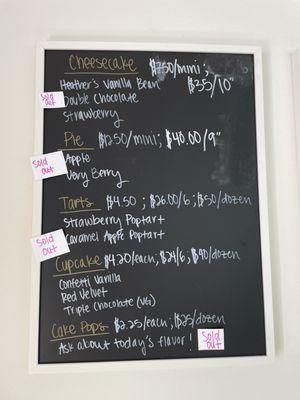 Cheesecake $7.50/mini;
Heather's Vanilla Bean $35/10"
Sold out
Double Chocolate
Strawberry
Pie $12.50/mini; $40.00/9"
Sold out
Apple
Very Berry
Tarts $4.50; $26.00/6; $50/dozen
Strawberry Poptart
Sold out
Caramel Apple Poptart
Cupcake $4.20/each; $24/6; $40/dozen
Confetti Vanilla
Red Velvet
Triple Chocolate (VG)
Cake Pops $2.25/each; $25/dozen
Ask about today's flavor!
Sold out